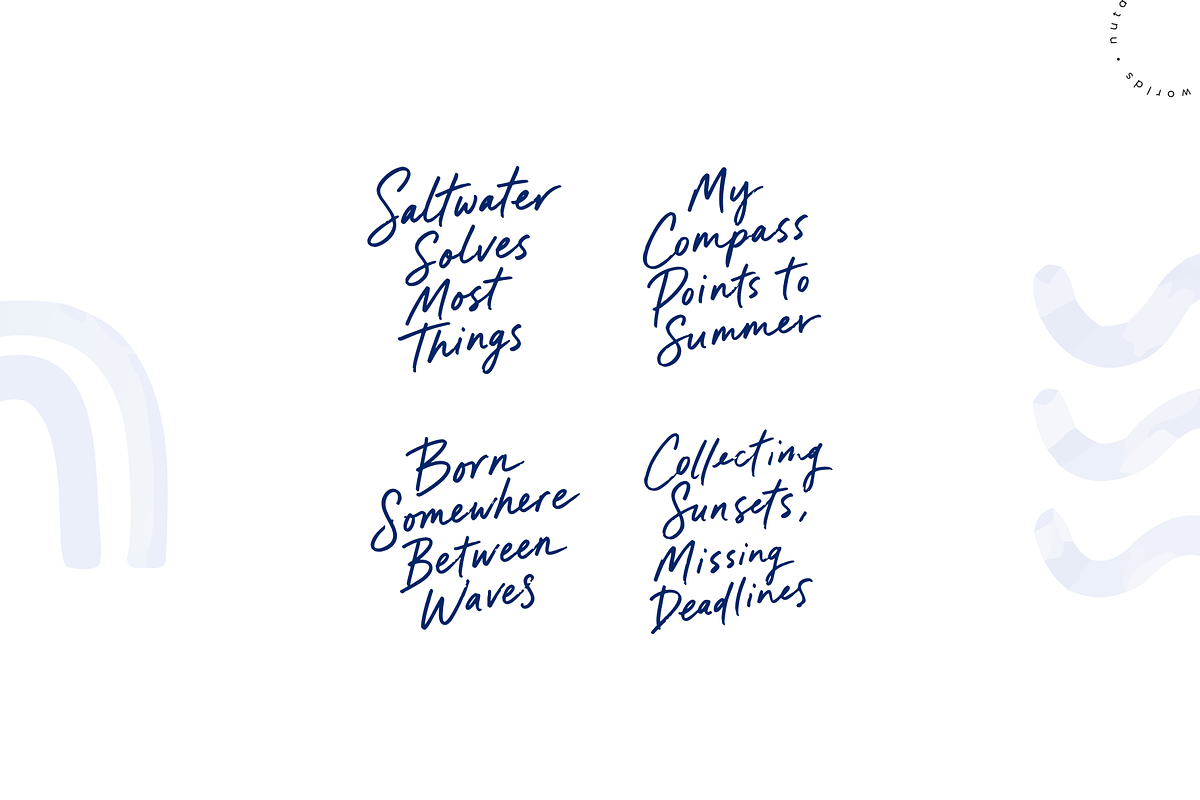 Saltwater
Solves
Most
Things
My
Compass
Points to
Summer
Born
Somewhere
Between
Waves
Collecting
Sunsets,
Missing
Deadlines
worlds •